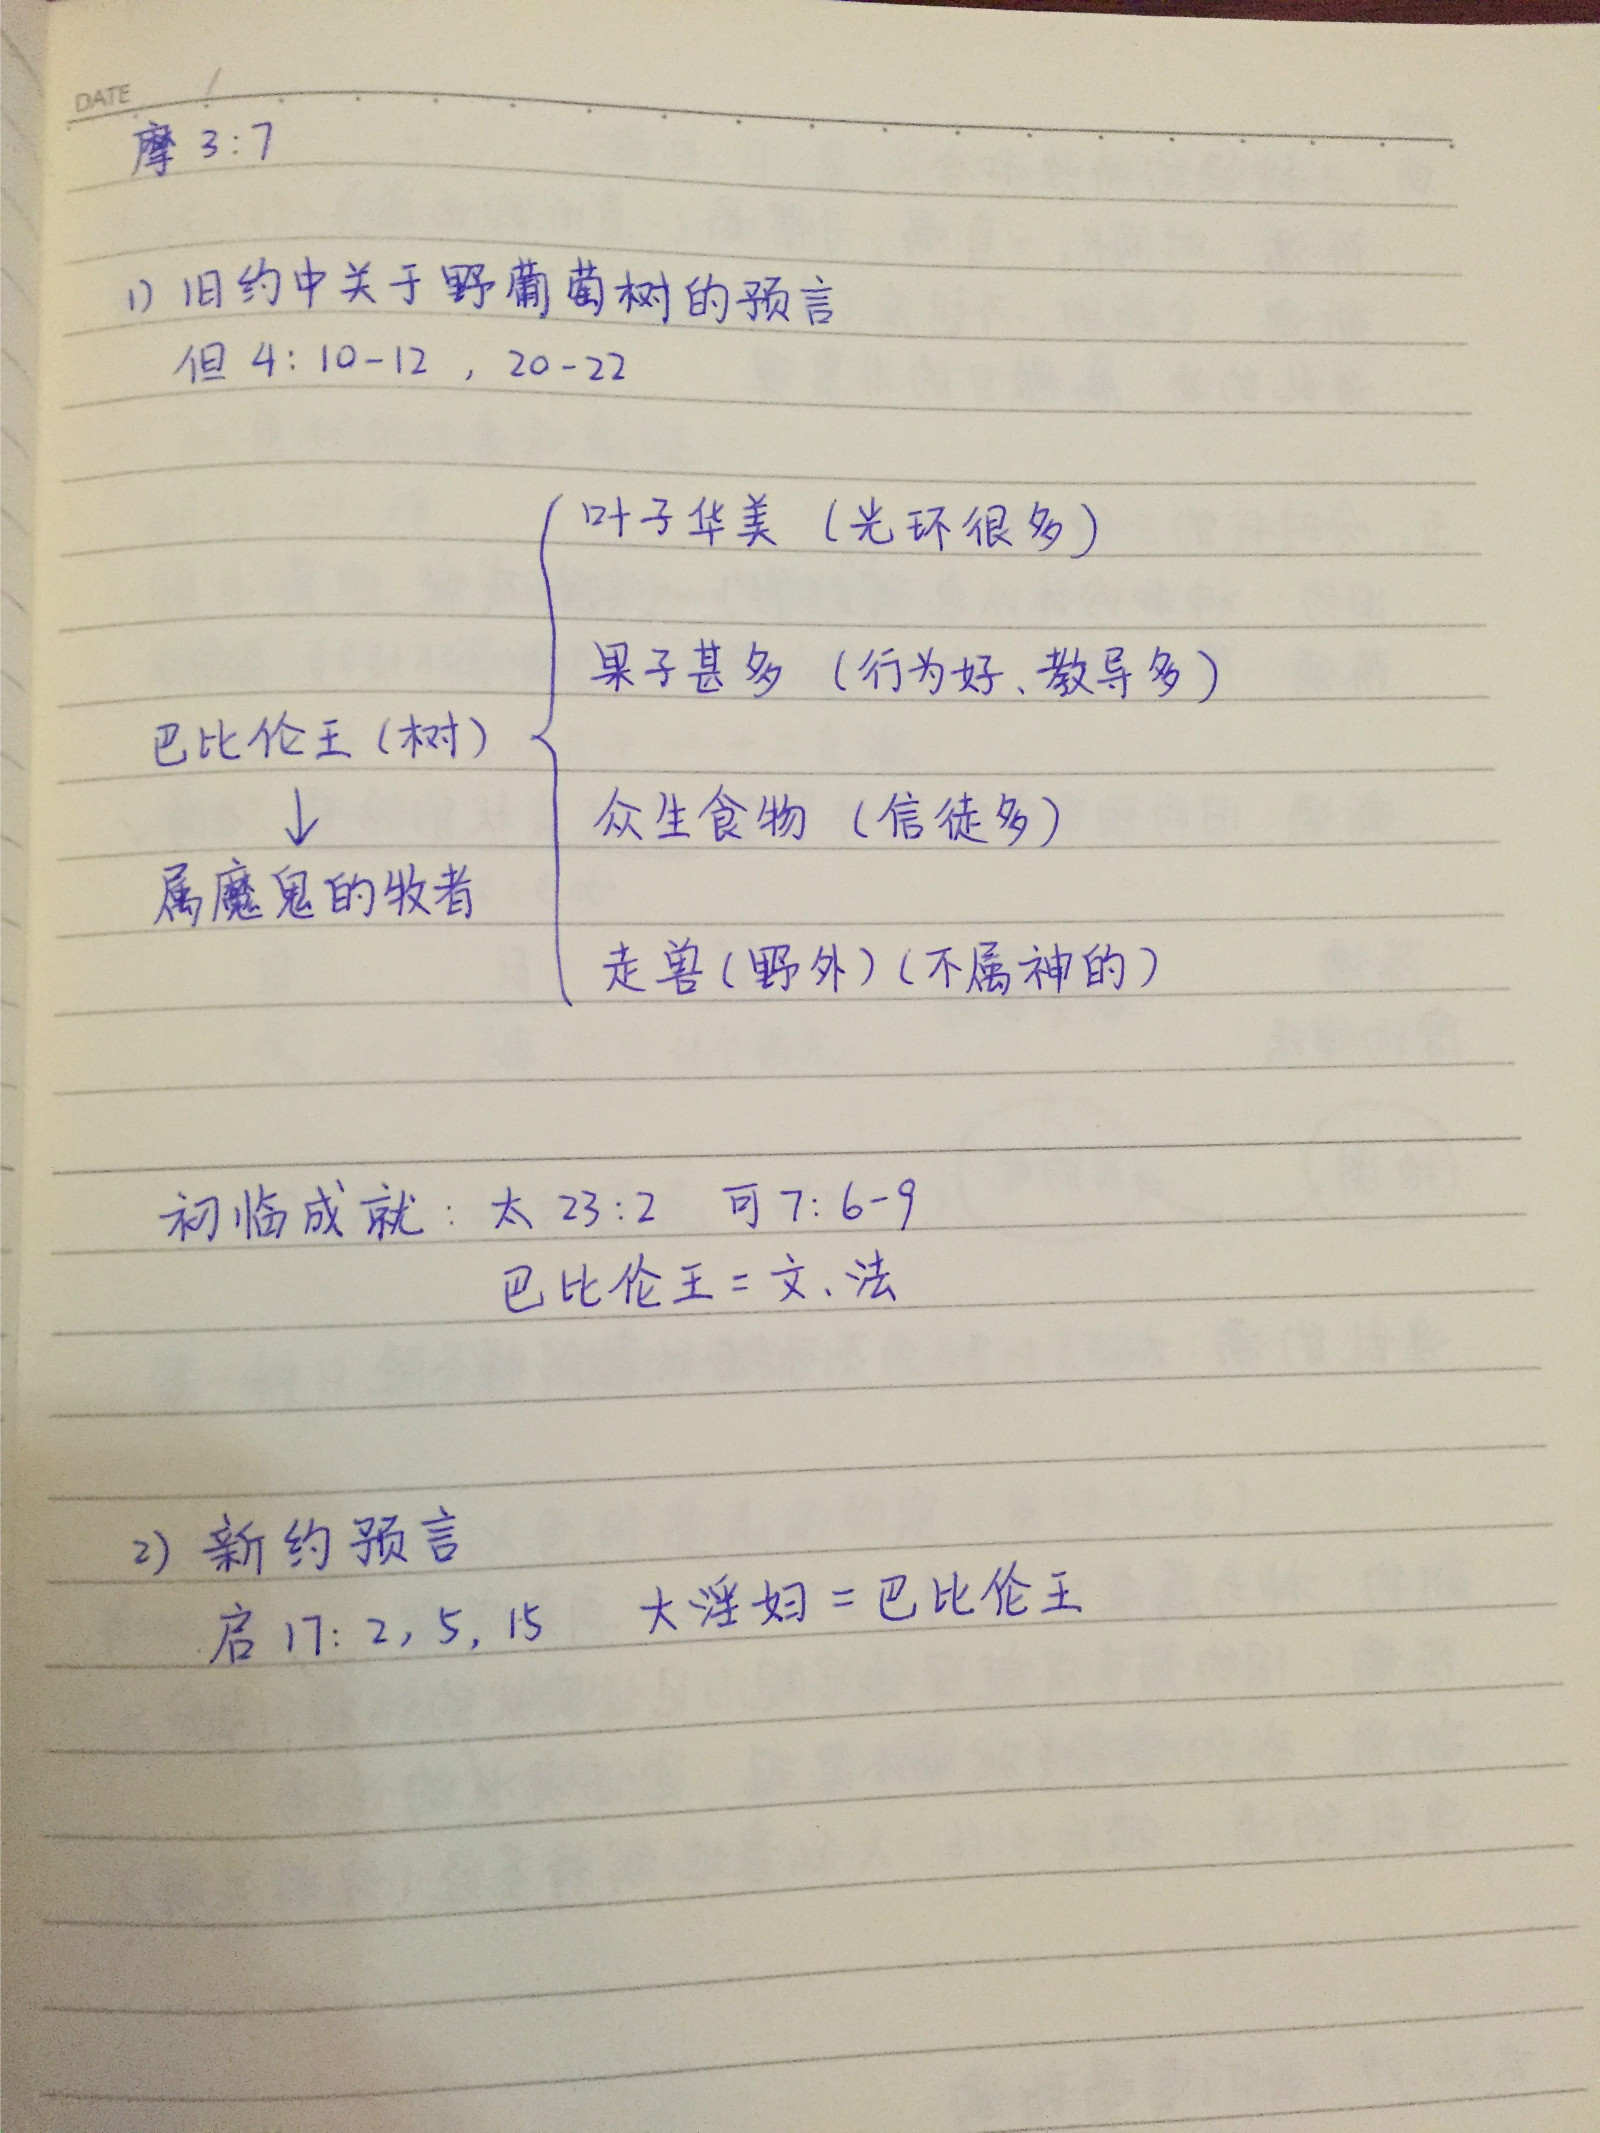 DATE /
摩 3:7
1) 旧约中关于野葡萄树的预言
但 4: 10-12 , 20-22
叶子华美 (光环很多)
果子甚多 (行为好、教导多)
巴比伦王(树)
众生食物 (信徒多)
↓
属魔鬼的牧者
走兽(野外)(不属神的)
初临成就: 太 23:2 可 7: 6-9
巴比伦王=文、法
2) 新约预言
启 17: 2, 5, 15 大淫妇=巴比伦王